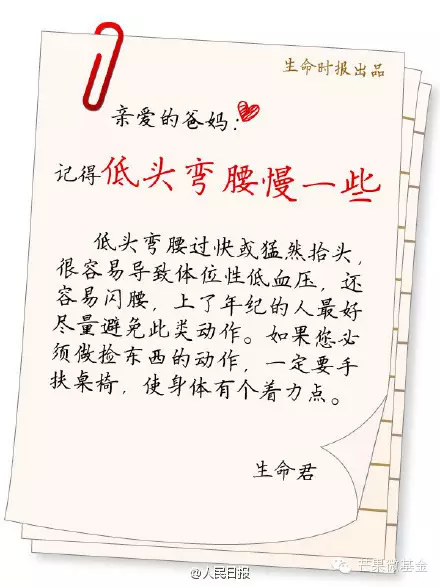 生命时报出品
亲爱的爸妈：
记得低头弯腰慢一些
低头弯腰过快或猛然抬头，
很容易导致体位性低血压，还
容易闪腰，上了年纪的人最好
尽量避免此类动作。如果您必
须做捡东西的动作，一定要手
扶桌椅，使身体有个着力点。
生命君
@人民日报
芒果微基金